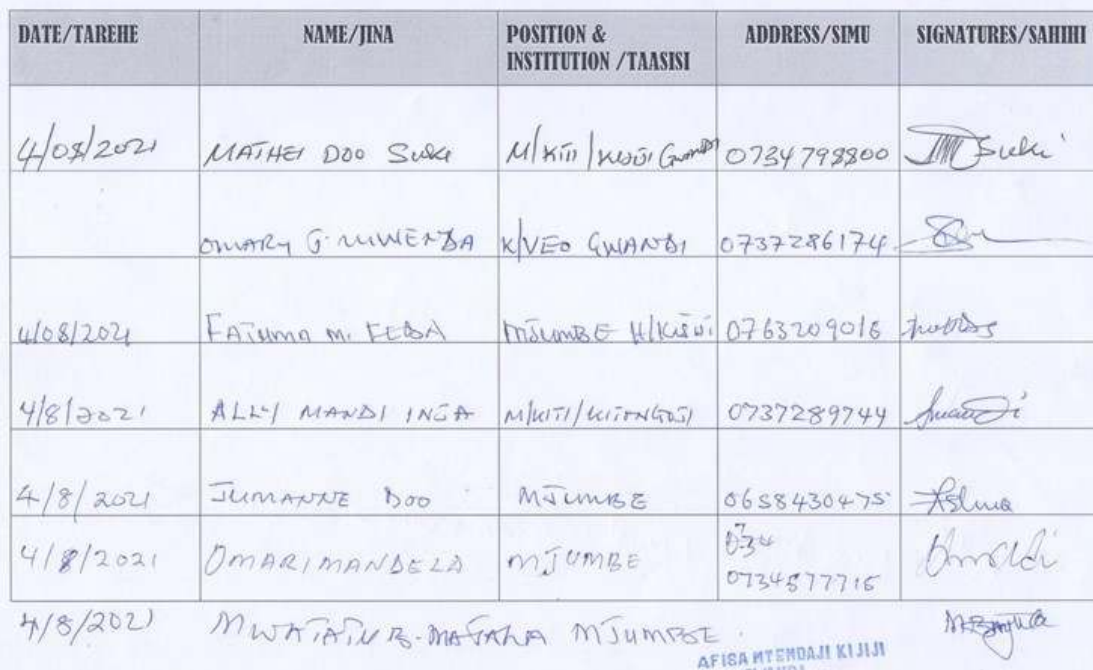 DATE/TAREHE NAME/JINA POSITION & INSTITUTION /TAASISI ADDRESS/SIMU SIGNATURES/SAHIHI
4/08/2021 MATHEI DOO SUKE M/KITI/KIJIJI 0734798800 Suki
OMARY G. K/VEO GWANDI 0737286174
4/08/2021 FATUMA M. MJUMBE H/KIJIJI 0763209016
4/8/2021 ALLY MANDI INJA M/KITI/KITONGOJI 0737289744
4/8/2021 JUMANNE DOO MJUMBE 0658430475
4/8/2021 OMARI MANDELA MJUMBE 0734577715
4/8/2021 MJUMBE
AFISA MTENDAJI KIJIJI